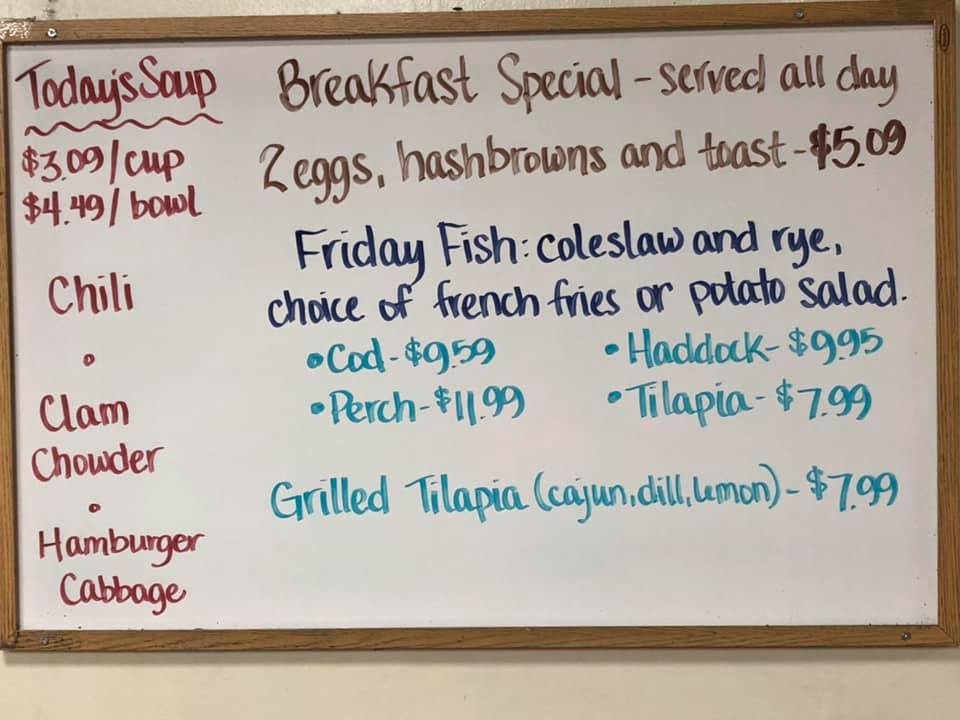 Today's Soup
$3.09/cup
$4.49/bowl
Chili
•
Clam
Chowder
•
Hamburger
Cabbage
Breakfast Special - served all day
2 eggs, hashbrowns and toast - $5.09
Friday Fish: coleslaw and rye,
choice of french fries or potato salad.
• Cod - $9.59
• Haddock - $9.95
• Perch - $11.99
• Tilapia - $7.99
Grilled Tilapia (cajun, dill, lemon) - $7.99